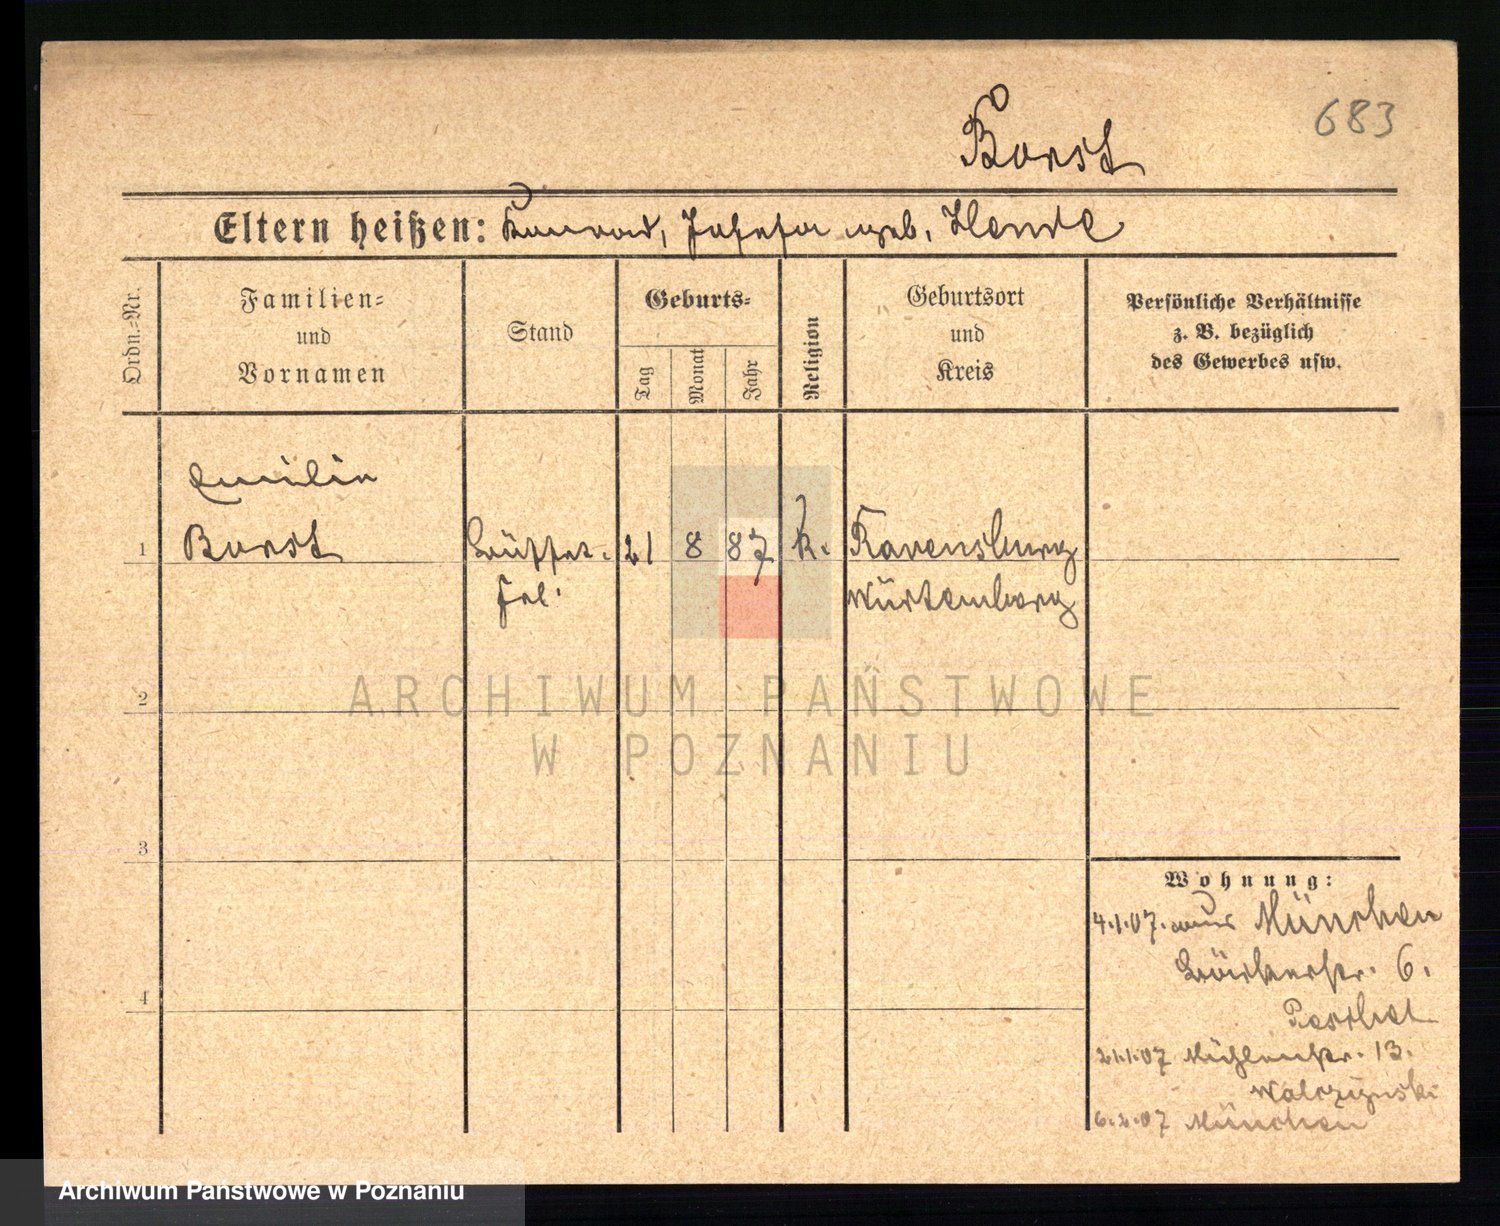 683
Borst
Eltern heißen: Konrad, Josefa geb.
Ordn.=Nr.
Familien=
und
Vornamen
Stand
Geburts=
Tag
Monat
Jahr
Religion
Geburtsort
und
Kreis
Persönliche Verhältnisse
z. B. bezüglich
des Gewerbes usw.
Emilie
1 Borst Büffet= 21 8 87 k. Ravensburg
frl. Württemberg
2
ARCHIWUM PAŃSTWOWE
W POZNANIU
3
Wohnung:
4.1.07. aus München
Bäckerstr. 6.
4
21.1.07 Mühlenstr. 13.
6.2.07 München
Archiwum Państwowe w Poznaniu